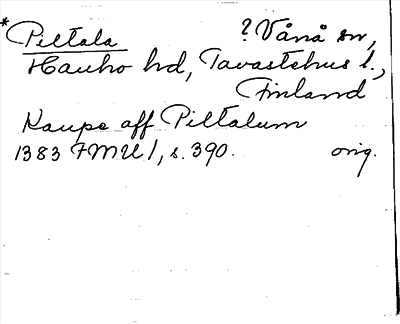 *Piltala ? Vånå sn,
Hauho hd, Tavastehus l.,
Finland
Kaupe aff Piltalum
1383 FMU 1, s. 390. orig.